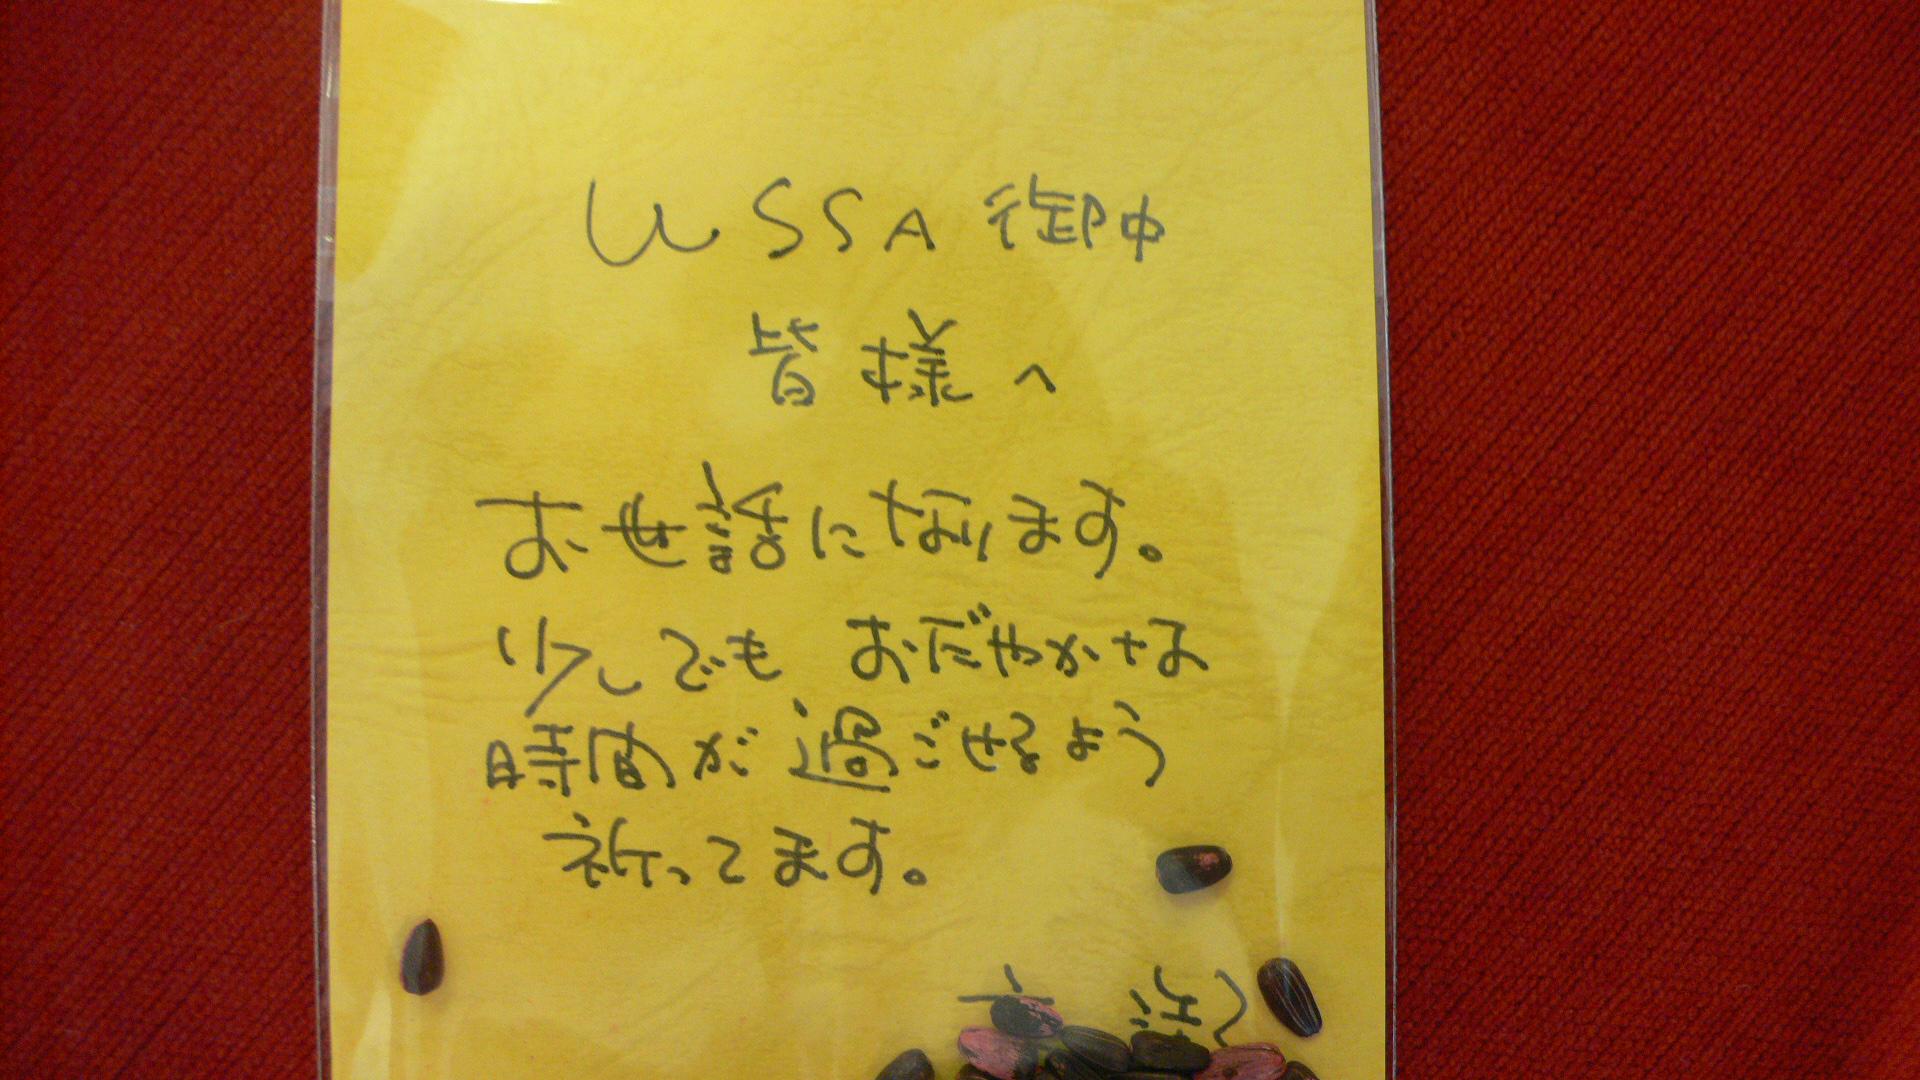 WSSA 御中
皆様へ
お世話になります。
少しでも おだやかな
時間が過ごせるよう
祈ってます。